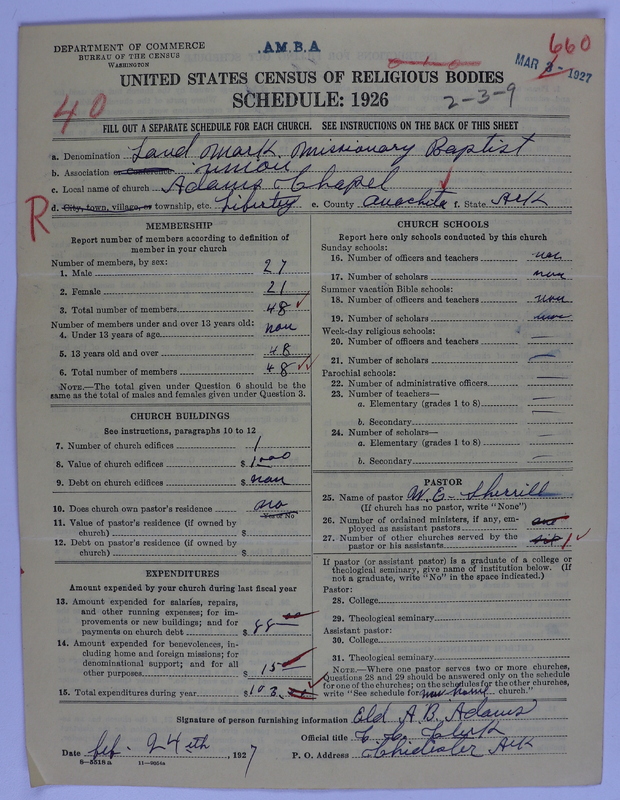 .A.M.B.A
660
DEPARTMENT OF COMMERCE
BUREAU OF THE CENSUS
WASHINGTON
MAR 3 - 1927
UNITED STATES CENSUS OF RELIGIOUS BODIES
SCHEDULE: 1926
40
2-3-9
FILL OUT A SEPARATE SCHEDULE FOR EACH CHURCH. SEE INSTRUCTIONS ON THE BACK OF THIS SHEET
a. Denomination Land Mark Missionary Baptist
b. Association or Conference union
c. Local name of church Adams Chapel
R
d. City, town, village, or township, etc. Liberty e. County Ouachita f. State Ark
MEMBERSHIP
Report number of members according to definition of
member in your church
Number of members, by sex:
1. Male 27
2. Female 21
3. Total number of members 48
Number of members under and over 13 years old:
4. Under 13 years of age non
5. 13 years old and over 48
6. Total number of members 48
NOTE.—The total given under Question 6 should be
same as the total of males and females given under Question 3.
CHURCH BUILDINGS
See instructions, paragraphs 10 to 12
7. Number of church edifices 1
8. Value of church edifices $1000
9. Debt on church edifices $non
10. Does church own pastor's residence no
Yes or No
11. Value of pastor's residence (if owned by
church) $
12. Debt on pastor's residence (if owned by
church) $
EXPENDITURES
Amount expended by your church during last fiscal year
13. Amount expended for salaries, repairs,
and other running expenses; for im-
provements or new buildings; and for
payments on church debt $ 88
14. Amount expended for benevolences, in-
cluding home and foreign missions; for
denominational support; and for all
other purposes $ 15
15. Total expenditures during year $103
CHURCH SCHOOLS
Report here only schools conducted by this church
Sunday schools:
16. Number of officers and teachers non
17. Number of scholars non
Summer vacation Bible schools:
18. Number of officers and teachers non
19. Number of scholars non
Week-day religious schools:
20. Number of officers and teachers
21. Number of scholars
Parochial schools:
22. Number of administrative officers
23. Number of teachers—
a. Elementary (grades 1 to 8)
b. Secondary
24. Number of scholars—
a. Elementary (grades 1 to 8)
b. Secondary
PASTOR
25. Name of pastor W. E. Sherrill
(If church has no pastor, write "None")
26. Number of ordained ministers, if any, em-
ployed as assistant pastors
27. Number of other churches served by the
pastor or his assistants 1
If pastor (or assistant pastor) is a graduate of a college or
theological seminary, give name of institution below. (If
not a graduate, write "No" in the space indicated.)
Pastor:
28. College
29. Theological seminary
Assistant pastor:
30. College
31. Theological seminary
NOTE.—Where one pastor serves two or more churches,
Questions 28 and 29 should be answered only on the schedule
for one of the churches; on the schedules for the other churches,
write "See schedule for church."
Signature of person furnishing information Eld A.B. Adams
Official title C. C. Clerk
Date feb. 24th, 1927
P. O. Address Chidester Ark
8—5518a 11—9054a